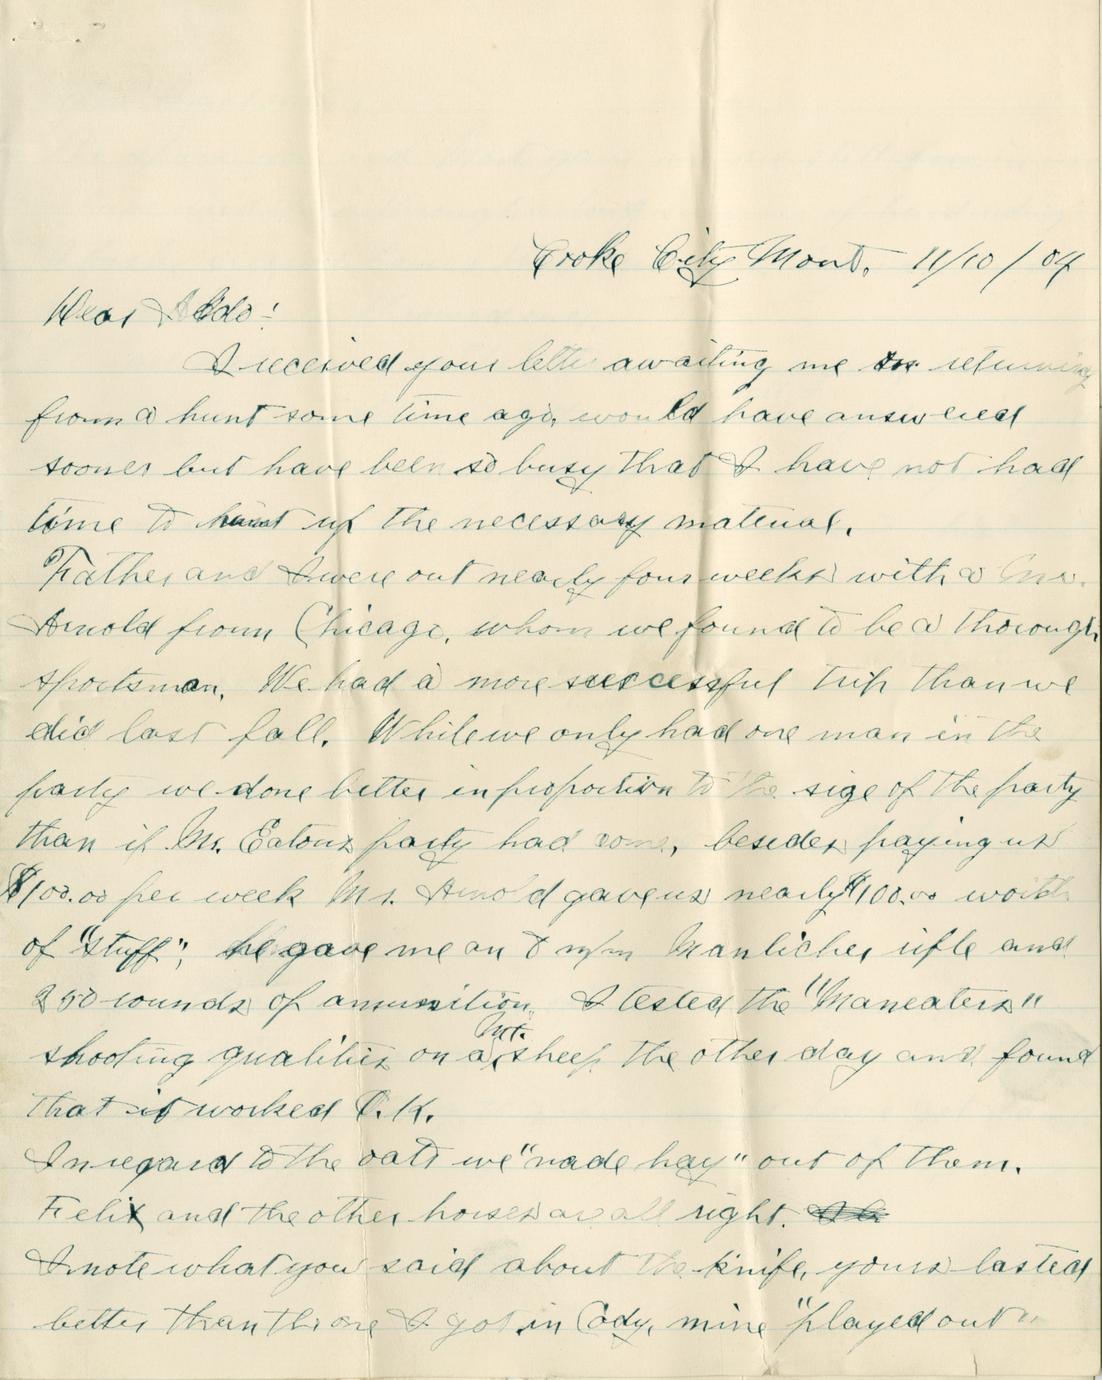 Cooke City Mont. 11/10/04
Dear Aldo:
I received your letter awaiting me on returning
from a hunt some time ago, would have answered
sooner but have been so busy that I have not had
time to hunt up the necessary material.
Father and I were out nearly four weeks with a Mr.
Arnold from Chicago, whom we found to be a thorough
sportsman. We had a more successful trip than we
did last fall. While we only had one man in the
party we done better in proportion to the size of the party
than if Mr. Eatons party had come, besides paying us
$100.00 per week Mr. Arnold gave us nearly $100.00 worth
of "stuff"; he gave me an 8 m/m Manlicher rifle and
250 rounds of amunition. I tested the "Maneaters"
shooting qualities on a Mt. sheep the other day and found
that it worked O.K.
In regard to the oats we "made hay" out of them.
Felix and the other horses are all right.
I note what you said about the knife, yours lasted
better than the one I got in Cody, mine "played out"